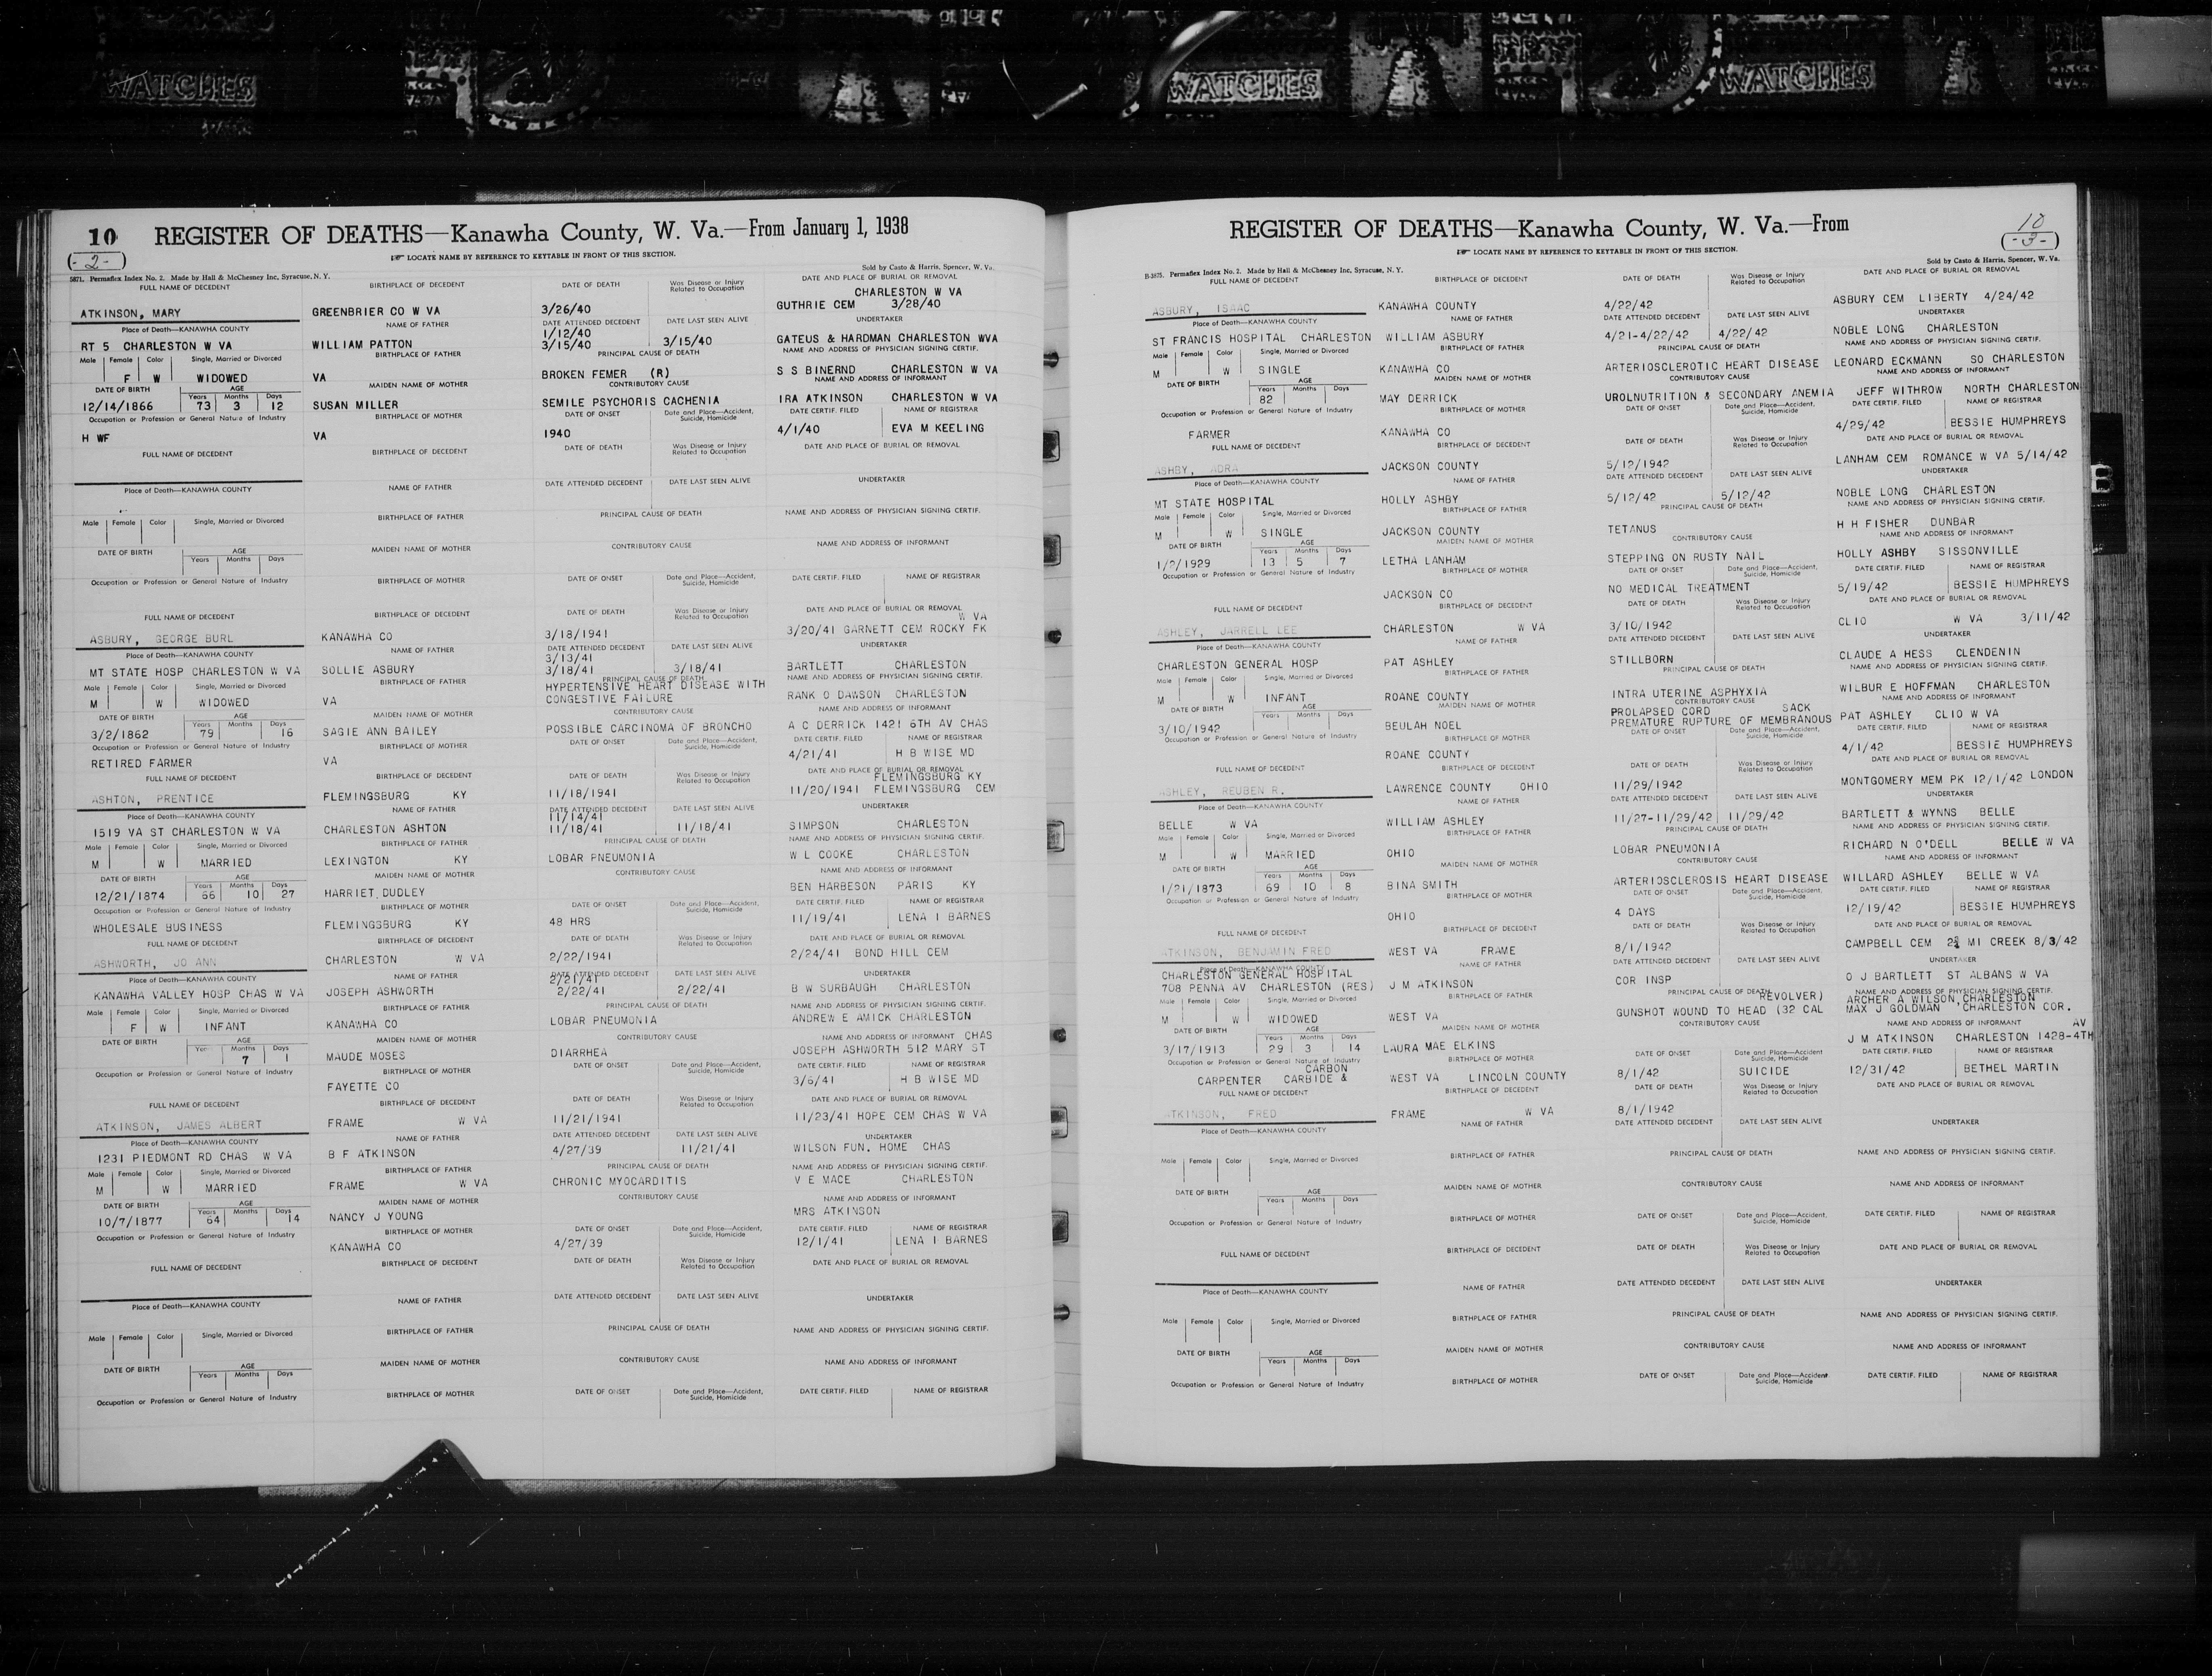 WATCHES WATCHES WATCHES
10 REGISTER OF DEATHS—Kanawha County, W. Va.—From January 1, 1938
(- 2 -)
☞ LOCATE NAME BY REFERENCE TO KEYTABLE IN FRONT OF THIS SECTION.
5871. Permaflex Index No. 2. Made by Hall & McChesney Inc, Syracuse, N. Y. Sold by Casto & Harris, Spencer, W. Va.
FULL NAME OF DECEDENT BIRTHPLACE OF DECEDENT DATE OF DEATH Was Disease or Injury Related to Occupation DATE AND PLACE OF BURIAL OR REMOVAL
CHARLESTON W VA
ATKINSON, MARY GREENBRIER CO W VA 3/26/40 GUTHRIE CEM 3/28/40
Place of Death—KANAWHA COUNTY NAME OF FATHER DATE ATTENDED DECEDENT DATE LAST SEEN ALIVE UNDERTAKER
1/12/40
RT 5 CHARLESTON W VA WILLIAM PATTON 3/15/40 3/15/40 GATEUS & HARDMAN CHARLESTON WVA
Male Female Color Single, Married or Divorced BIRTHPLACE OF FATHER PRINCIPAL CAUSE OF DEATH NAME AND ADDRESS OF PHYSICIAN SIGNING CERTIF.
F W WIDOWED VA BROKEN FEMER (R) S S BINERND CHARLESTON W VA
DATE OF BIRTH AGE Years Months Days MAIDEN NAME OF MOTHER CONTRIBUTORY CAUSE NAME AND ADDRESS OF INFORMANT
12/14/1866 73 3 12 SUSAN MILLER SEMILE PSYCHORIS CACHENIA IRA ATKINSON CHARLESTON W VA
Occupation or Profession or General Nature of Industry BIRTHPLACE OF MOTHER DATE OF ONSET Date and Place—Accident, Suicide, Homicide DATE CERTIF. FILED NAME OF REGISTRAR
H WF VA 1940 4/1/40 EVA M KEELING
FULL NAME OF DECEDENT BIRTHPLACE OF DECEDENT DATE OF DEATH Was Disease or Injury Related to Occupation DATE AND PLACE OF BURIAL OR REMOVAL
Place of Death—KANAWHA COUNTY NAME OF FATHER DATE ATTENDED DECEDENT DATE LAST SEEN ALIVE UNDERTAKER
Male Female Color Single, Married or Divorced BIRTHPLACE OF FATHER PRINCIPAL CAUSE OF DEATH NAME AND ADDRESS OF PHYSICIAN SIGNING CERTIF.
DATE OF BIRTH AGE Years Months Days MAIDEN NAME OF MOTHER CONTRIBUTORY CAUSE NAME AND ADDRESS OF INFORMANT
Occupation or Profession or General Nature of Industry BIRTHPLACE OF MOTHER DATE OF ONSET Date and Place—Accident, Suicide, Homicide DATE CERTIF. FILED NAME OF REGISTRAR
FULL NAME OF DECEDENT BIRTHPLACE OF DECEDENT DATE OF DEATH Was Disease or Injury Related to Occupation DATE AND PLACE OF BURIAL OR REMOVAL
W VA
ASBURY, GEORGE BURL KANAWHA CO 3/18/1941 3/20/41 GARNETT CEM ROCKY FK
Place of Death—KANAWHA COUNTY NAME OF FATHER DATE ATTENDED DECEDENT DATE LAST SEEN ALIVE UNDERTAKER
3/13/41
MT STATE HOSP CHARLESTON W VA SOLLIE ASBURY 3/18/41 3/18/41 BARTLETT CHARLESTON
Male Female Color Single, Married or Divorced BIRTHPLACE OF FATHER PRINCIPAL CAUSE OF DEATH NAME AND ADDRESS OF PHYSICIAN SIGNING CERTIF.
HYPERTENSIVE HEART DISEASE WITH
M W WIDOWED VA CONGESTIVE FAILURE RANK O DAWSON CHARLESTON
DATE OF BIRTH AGE Years Months Days MAIDEN NAME OF MOTHER CONTRIBUTORY CAUSE NAME AND ADDRESS OF INFORMANT
3/2/1862 79 16 SAGIE ANN BAILEY POSSIBLE CARCINOMA OF BRONCHO A C DERRICK 1421 6TH AV CHAS
Occupation or Profession or General Nature of Industry BIRTHPLACE OF MOTHER DATE OF ONSET Date and Place—Accident, Suicide, Homicide DATE CERTIF. FILED NAME OF REGISTRAR
RETIRED FARMER VA 4/21/41 H B WISE MD
FULL NAME OF DECEDENT BIRTHPLACE OF DECEDENT DATE OF DEATH Was Disease or Injury Related to Occupation DATE AND PLACE OF BURIAL OR REMOVAL
FLEMINGSBURG KY
ASHTON, PRENTICE FLEMINGSBURG KY 11/18/1941 11/20/1941 FLEMINGSBURG CEM
Place of Death—KANAWHA COUNTY NAME OF FATHER DATE ATTENDED DECEDENT DATE LAST SEEN ALIVE UNDERTAKER
11/14/41
1519 VA ST CHARLESTON W VA CHARLESTON ASHTON 11/18/41 11/18/41 SIMPSON CHARLESTON
Male Female Color Single, Married or Divorced BIRTHPLACE OF FATHER PRINCIPAL CAUSE OF DEATH NAME AND ADDRESS OF PHYSICIAN SIGNING CERTIF.
M W MARRIED LEXINGTON KY LOBAR PNEUMONIA W L COOKE CHARLESTON
DATE OF BIRTH AGE Years Months Days MAIDEN NAME OF MOTHER CONTRIBUTORY CAUSE NAME AND ADDRESS OF INFORMANT
12/21/1874 66 10 27 HARRIET DUDLEY BEN HARBESON PARIS KY
Occupation or Profession or General Nature of Industry BIRTHPLACE OF MOTHER DATE OF ONSET Date and Place—Accident, Suicide, Homicide DATE CERTIF. FILED NAME OF REGISTRAR
WHOLESALE BUSINESS FLEMINGSBURG KY 48 HRS 11/19/41 LENA I BARNES
FULL NAME OF DECEDENT BIRTHPLACE OF DECEDENT DATE OF DEATH Was Disease or Injury Related to Occupation DATE AND PLACE OF BURIAL OR REMOVAL
ASHWORTH, JO ANN CHARLESTON W VA 2/22/1941 2/24/41 BOND HILL CEM
Place of Death—KANAWHA COUNTY NAME OF FATHER DATE ATTENDED DECEDENT DATE LAST SEEN ALIVE UNDERTAKER
2/21/41
KANAWHA VALLEY HOSP CHAS W VA JOSEPH ASHWORTH 2/22/41 2/22/41 B W SURBAUGH CHARLESTON
Male Female Color Single, Married or Divorced BIRTHPLACE OF FATHER PRINCIPAL CAUSE OF DEATH NAME AND ADDRESS OF PHYSICIAN SIGNING CERTIF.
F W INFANT KANAWHA CO LOBAR PNEUMONIA ANDREW E AMICK CHARLESTON
DATE OF BIRTH AGE Months Days MAIDEN NAME OF MOTHER CONTRIBUTORY CAUSE NAME AND ADDRESS OF INFORMANT CHAS
7 1 MAUDE MOSES DIARRHEA JOSEPH ASHWORTH 512 MARY ST
Occupation or Profession or General Nature of Industry BIRTHPLACE OF MOTHER DATE OF ONSET Date and Place—Accident, Suicide, Homicide DATE CERTIF. FILED NAME OF REGISTRAR
FAYETTE CO 3/6/41 H B WISE MD
FULL NAME OF DECEDENT BIRTHPLACE OF DECEDENT DATE OF DEATH Was Disease or Injury Related to Occupation DATE AND PLACE OF BURIAL OR REMOVAL
ATKINSON, JAMES ALBERT FRAME W VA 11/21/1941 11/23/41 HOPE CEM CHAS W VA
Place of Death—KANAWHA COUNTY NAME OF FATHER DATE ATTENDED DECEDENT DATE LAST SEEN ALIVE UNDERTAKER
1231 PIEDMONT RD CHAS W VA B F ATKINSON 4/27/39 11/21/41 WILSON FUN. HOME CHAS
Male Female Color Single, Married or Divorced BIRTHPLACE OF FATHER PRINCIPAL CAUSE OF DEATH NAME AND ADDRESS OF PHYSICIAN SIGNING CERTIF.
M W MARRIED FRAME W VA CHRONIC MYOCARDITIS V E MACE CHARLESTON
DATE OF BIRTH AGE Years Months Days MAIDEN NAME OF MOTHER CONTRIBUTORY CAUSE NAME AND ADDRESS OF INFORMANT
10/7/1877 64 14 NANCY J YOUNG MRS ATKINSON
Occupation or Profession or General Nature of Industry BIRTHPLACE OF MOTHER DATE OF ONSET Date and Place—Accident, Suicide, Homicide DATE CERTIF. FILED NAME OF REGISTRAR
KANAWHA CO 4/27/39 12/1/41 LENA I BARNES
FULL NAME OF DECEDENT BIRTHPLACE OF DECEDENT DATE OF DEATH Was Disease or Injury Related to Occupation DATE AND PLACE OF BURIAL OR REMOVAL
Place of Death—KANAWHA COUNTY NAME OF FATHER DATE ATTENDED DECEDENT DATE LAST SEEN ALIVE UNDERTAKER
Male Female Color Single, Married or Divorced BIRTHPLACE OF FATHER PRINCIPAL CAUSE OF DEATH NAME AND ADDRESS OF PHYSICIAN SIGNING CERTIF.
DATE OF BIRTH AGE Years Months Days MAIDEN NAME OF MOTHER CONTRIBUTORY CAUSE NAME AND ADDRESS OF INFORMANT
Occupation or Profession or General Nature of Industry BIRTHPLACE OF MOTHER DATE OF ONSET Date and Place—Accident, Suicide, Homicide DATE CERTIF. FILED NAME OF REGISTRAR
REGISTER OF DEATHS—Kanawha County, W. Va.—From 10
(- 3 -)
☞ LOCATE NAME BY REFERENCE TO KEYTABLE IN FRONT OF THIS SECTION.
B-3875. Permaflex Index No. 2. Made by Hall & McChesney Inc, Syracuse, N. Y. Sold by Casto & Harris, Spencer, W. Va.
FULL NAME OF DECEDENT BIRTHPLACE OF DECEDENT DATE OF DEATH Was Disease or Injury Related to Occupation DATE AND PLACE OF BURIAL OR REMOVAL
ASBURY, ISAAC KANAWHA COUNTY 4/22/42 ASBURY CEM LIBERTY 4/24/42
Place of Death—KANAWHA COUNTY NAME OF FATHER DATE ATTENDED DECEDENT DATE LAST SEEN ALIVE UNDERTAKER
ST FRANCIS HOSPITAL CHARLESTON WILLIAM ASBURY 4/21-4/22/42 4/22/42 NOBLE LONG CHARLESTON
Male Female Color Single, Married or Divorced BIRTHPLACE OF FATHER PRINCIPAL CAUSE OF DEATH NAME AND ADDRESS OF PHYSICIAN SIGNING CERTIF.
M W SINGLE KANAWHA CO ARTERIOSCLEROTIC HEART DISEASE LEONARD ECKMANN SO CHARLESTON
DATE OF BIRTH AGE Years Months Days MAIDEN NAME OF MOTHER CONTRIBUTORY CAUSE NAME AND ADDRESS OF INFORMANT
82 MAY DERRICK UROLNUTRITION & SECONDARY ANEMIA JEFF WITHROW NORTH CHARLESTON
Occupation or Profession or General Nature of Industry BIRTHPLACE OF MOTHER DATE OF ONSET Date and Place—Accident, Suicide, Homicide DATE CERTIF. FILED NAME OF REGISTRAR
FARMER KANAWHA CO 4/29/42 BESSIE HUMPHREYS
FULL NAME OF DECEDENT BIRTHPLACE OF DECEDENT DATE OF DEATH Was Disease or Injury Related to Occupation DATE AND PLACE OF BURIAL OR REMOVAL
ASHBY, ADRA JACKSON COUNTY 5/12/1942 LANHAM CEM ROMANCE W VA 5/14/42
Place of Death—KANAWHA COUNTY NAME OF FATHER DATE ATTENDED DECEDENT DATE LAST SEEN ALIVE UNDERTAKER
MT STATE HOSPITAL HOLLY ASHBY 5/12/42 5/12/42 NOBLE LONG CHARLESTON
Male Female Color Single, Married or Divorced BIRTHPLACE OF FATHER PRINCIPAL CAUSE OF DEATH NAME AND ADDRESS OF PHYSICIAN SIGNING CERTIF.
M W SINGLE JACKSON COUNTY TETANUS H H FISHER DUNBAR
DATE OF BIRTH AGE Years Months Days MAIDEN NAME OF MOTHER CONTRIBUTORY CAUSE NAME AND ADDRESS OF INFORMANT
1/2/1929 13 5 7 LETHA LANHAM STEPPING ON RUSTY NAIL HOLLY ASHBY SISSONVILLE
Occupation or Profession or General Nature of Industry BIRTHPLACE OF MOTHER DATE OF ONSET Date and Place—Accident, Suicide, Homicide DATE CERTIF. FILED NAME OF REGISTRAR
JACKSON CO NO MEDICAL TREATMENT 5/19/42 BESSIE HUMPHREYS
FULL NAME OF DECEDENT BIRTHPLACE OF DECEDENT DATE OF DEATH Was Disease or Injury Related to Occupation DATE AND PLACE OF BURIAL OR REMOVAL
ASHLEY, JARRELL LEE CHARLESTON W VA 3/10/1942 CLIO W VA 3/11/42
Place of Death—KANAWHA COUNTY NAME OF FATHER DATE ATTENDED DECEDENT DATE LAST SEEN ALIVE UNDERTAKER
CHARLESTON GENERAL HOSP PAT ASHLEY STILLBORN CLAUDE A HESS CLENDENIN
Male Female Color Single, Married or Divorced BIRTHPLACE OF FATHER PRINCIPAL CAUSE OF DEATH NAME AND ADDRESS OF PHYSICIAN SIGNING CERTIF.
M W INFANT ROANE COUNTY INTRA UTERINE ASPHYXIA WILBUR E HOFFMAN CHARLESTON
DATE OF BIRTH AGE Years Months Days MAIDEN NAME OF MOTHER CONTRIBUTORY CAUSE NAME AND ADDRESS OF INFORMANT
PROLAPSED CORD SACK
3/10/1942 BEULAH NOEL PREMATURE RUPTURE OF MEMBRANOUS PAT ASHLEY CLIO W VA
Occupation or Profession or General Nature of Industry BIRTHPLACE OF MOTHER DATE OF ONSET Date and Place—Accident, Suicide, Homicide DATE CERTIF. FILED NAME OF REGISTRAR
ROANE COUNTY 4/1/42 BESSIE HUMPHREYS
FULL NAME OF DECEDENT BIRTHPLACE OF DECEDENT DATE OF DEATH Was Disease or Injury Related to Occupation DATE AND PLACE OF BURIAL OR REMOVAL
ASHLEY, REUBEN R. LAWRENCE COUNTY OHIO 11/29/1942 MONTGOMERY MEM PK 12/1/42 LONDON
Place of Death—KANAWHA COUNTY NAME OF FATHER DATE ATTENDED DECEDENT DATE LAST SEEN ALIVE UNDERTAKER
BELLE W VA WILLIAM ASHLEY 11/27-11/29/42 11/29/42 BARTLETT & WYNNS BELLE
Male Female Color Single, Married or Divorced BIRTHPLACE OF FATHER PRINCIPAL CAUSE OF DEATH NAME AND ADDRESS OF PHYSICIAN SIGNING CERTIF.
M W MARRIED OHIO LOBAR PNEUMONIA RICHARD N O'DELL BELLE W VA
DATE OF BIRTH AGE Years Months Days MAIDEN NAME OF MOTHER CONTRIBUTORY CAUSE NAME AND ADDRESS OF INFORMANT
1/21/1873 69 10 8 BINA SMITH ARTERIOSCLEROSIS HEART DISEASE WILLARD ASHLEY BELLE W VA
Occupation or Profession or General Nature of Industry BIRTHPLACE OF MOTHER DATE OF ONSET Date and Place—Accident, Suicide, Homicide DATE CERTIF. FILED NAME OF REGISTRAR
OHIO 4 DAYS 12/19/42 BESSIE HUMPHREYS
FULL NAME OF DECEDENT BIRTHPLACE OF DECEDENT DATE OF DEATH Was Disease or Injury Related to Occupation DATE AND PLACE OF BURIAL OR REMOVAL
ATKINSON, BENJAMIN FRED WEST VA FRAME 8/1/1942 CAMPBELL CEM MI CREEK 8/3/42
Place of Death—KANAWHA COUNTY NAME OF FATHER DATE ATTENDED DECEDENT DATE LAST SEEN ALIVE UNDERTAKER
CHARLESTON GENERAL HOSPITAL
708 PENNA AV CHARLESTON (RES) J M ATKINSON COR INSP O J BARTLETT ST ALBANS W VA
Male Female Color Single, Married or Divorced BIRTHPLACE OF FATHER PRINCIPAL CAUSE OF DEATH NAME AND ADDRESS OF PHYSICIAN SIGNING CERTIF.
REVOLVER) ARCHER A WILSON, CHARLESTON
M W WIDOWED WEST VA GUNSHOT WOUND TO HEAD (32 CAL MAX J GOLDMAN CHARLESTON COR.
DATE OF BIRTH AGE Years Months Days MAIDEN NAME OF MOTHER CONTRIBUTORY CAUSE NAME AND ADDRESS OF INFORMANT AV
3/17/1913 29 3 14 LAURA MAE ELKINS J M ATKINSON CHARLESTON 1428-4TH
Occupation or Profession or General Nature of Industry BIRTHPLACE OF MOTHER DATE OF ONSET Date and Place—Accident, Suicide, Homicide DATE CERTIF. FILED NAME OF REGISTRAR
CARBON
CARPENTER CARBIDE & WEST VA LINCOLN COUNTY 8/1/42 SUICIDE 12/31/42 BETHEL MARTIN
FULL NAME OF DECEDENT BIRTHPLACE OF DECEDENT DATE OF DEATH Was Disease or Injury Related to Occupation DATE AND PLACE OF BURIAL OR REMOVAL
ATKINSON, FRED FRAME W VA 8/1/1942
Place of Death—KANAWHA COUNTY NAME OF FATHER DATE ATTENDED DECEDENT DATE LAST SEEN ALIVE UNDERTAKER
Male Female Color Single, Married or Divorced BIRTHPLACE OF FATHER PRINCIPAL CAUSE OF DEATH NAME AND ADDRESS OF PHYSICIAN SIGNING CERTIF.
DATE OF BIRTH AGE Years Months Days MAIDEN NAME OF MOTHER CONTRIBUTORY CAUSE NAME AND ADDRESS OF INFORMANT
Occupation or Profession or General Nature of Industry BIRTHPLACE OF MOTHER DATE OF ONSET Date and Place—Accident, Suicide, Homicide DATE CERTIF. FILED NAME OF REGISTRAR
FULL NAME OF DECEDENT BIRTHPLACE OF DECEDENT DATE OF DEATH Was Disease or Injury Related to Occupation DATE AND PLACE OF BURIAL OR REMOVAL
Place of Death—KANAWHA COUNTY NAME OF FATHER DATE ATTENDED DECEDENT DATE LAST SEEN ALIVE UNDERTAKER
Male Female Color Single, Married or Divorced BIRTHPLACE OF FATHER PRINCIPAL CAUSE OF DEATH NAME AND ADDRESS OF PHYSICIAN SIGNING CERTIF.
DATE OF BIRTH AGE Years Months Days MAIDEN NAME OF MOTHER CONTRIBUTORY CAUSE NAME AND ADDRESS OF INFORMANT
Occupation or Profession or General Nature of Industry BIRTHPLACE OF MOTHER DATE OF ONSET Date and Place—Accident, Suicide, Homicide DATE CERTIF. FILED NAME OF REGISTRAR
B